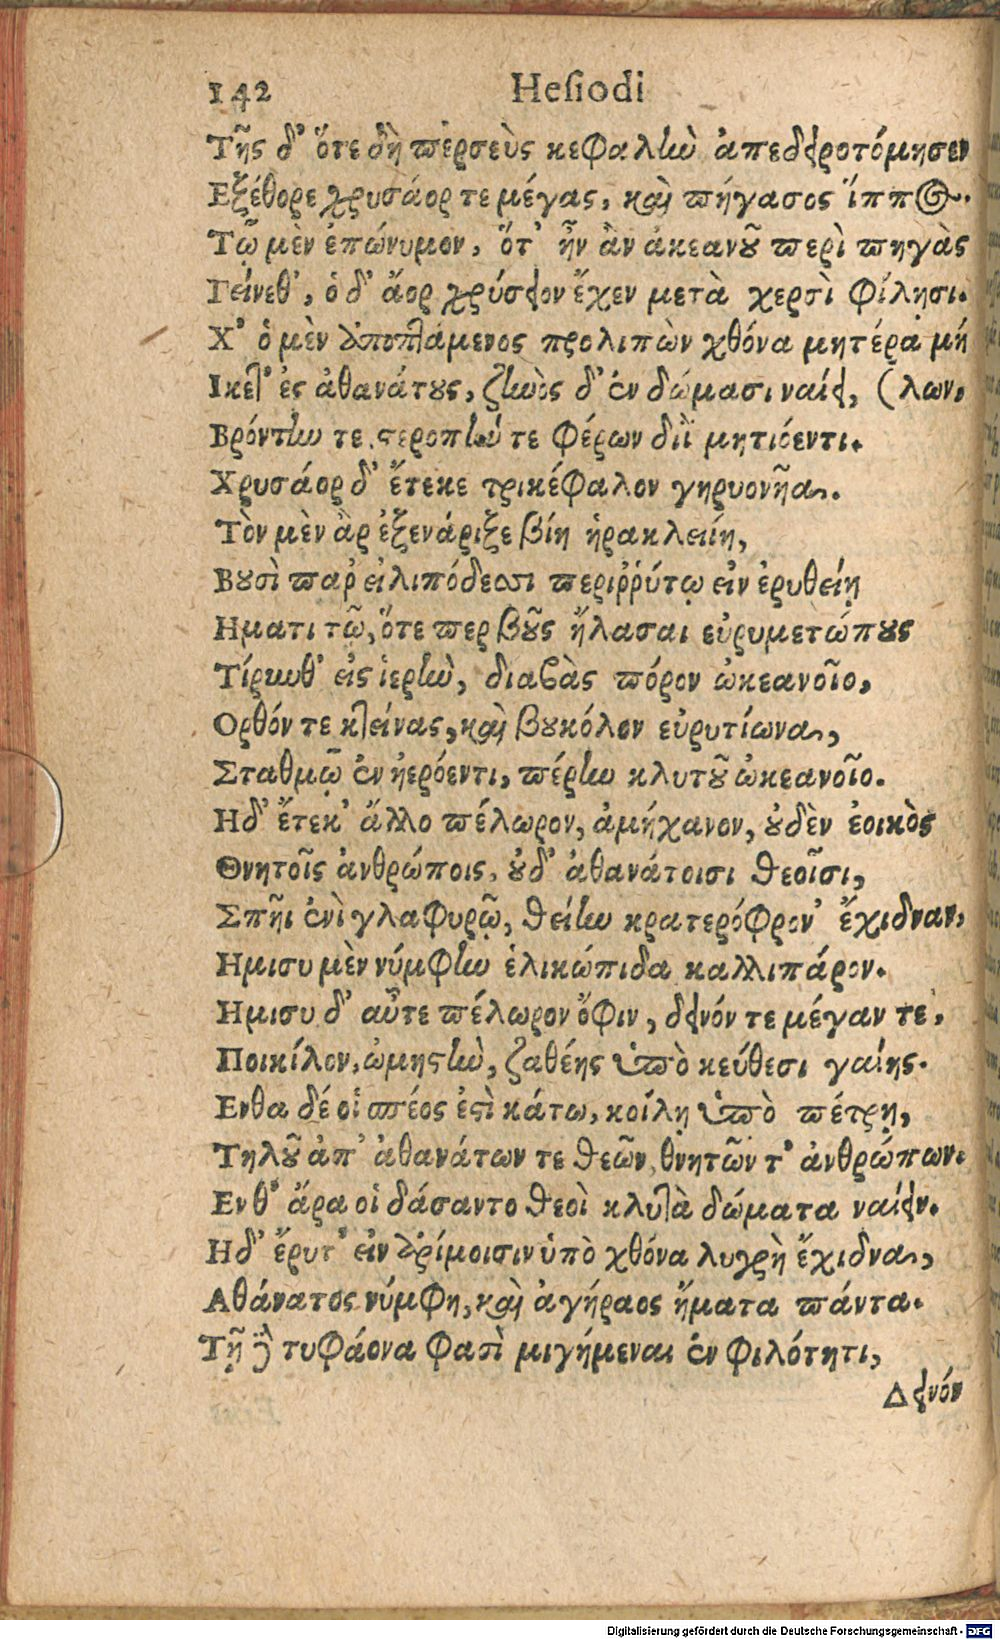 142 Heſiodi
Τῆς δ' ὅτε δὴ περσεὺς κεφαλὴν ἀπεδειροτόμησεν
Εξέθορε χρυσάορ τε μέγας, καὶ πήγασος ἵππος.
Τῷ μὲν ἐπώνυμον, ὅτ' ἦν ἂν ὠκεανοῦ περὶ πηγὰς
Γείνεθ', ὁ δ' ἄορ χρύσειον ἔχεν μετὰ χερσὶ φίλῃσι.
Χ' ὁ μὲν ἀποπτάμενος προλιπὼν χθόνα μητέρα μή
Ικετ' ἐς ἀθανάτους, ζωὸς δ' ἐν δώμασι ναίει, (λων.
Βρόντην τε στεροπήν τε φέρων διῒ μητιόεντι.
Χρυσάορ δ' ἔτεκε τρικέφαλον γηρυονῆα.
Τὸν μὲν ἂρ ἐξενάριξε βίη ἡρακλείη,
Βουσὶ παρ' εἰλιπόδεσσι περιῤῥύτῳ εἰν ἐρυθείῃ
Ηματι τῷ, ὅτε περ βοῦς ἤλασαι εὐρυμετώπους
Τίρυνθ' εἰς ἱερὴν, διαβὰς πόρον ὠκεανοῖο,
Ορθόν τε κτείνας, καὶ βουκόλον εὐρυτίωνα,
Σταθμῷ ἐν ἠερόεντι, πέρην κλυτοῦ ὠκεανοῖο.
Ηδ' ἔτεκ' ἄλλο πέλωρον, ἀμήχανον, οὐδὲν ἐοικὸς
Θνητοῖς ἀνθρώποις, οὐδ' ἀθανάτοισι θεοῖσι,
Σπῆι ἐνὶ γλαφυρῷ, θείην κρατερόφρον' ἔχιδναν,
Ημισυ μὲν νύμφην ἑλικώπιδα καλλιπάρον.
Ημισυ δ' αὖτε πέλωρον ὄφιν, δεινόν τε μέγαν τε,
Ποικίλον, ὠμηστὴν, ζαθέης ὑπὸ κεύθεσι γαίης.
Ενθα δέ οἱ σπέος ἐστὶ κάτω, κοίλῃ ὑπὸ πέτρῃ,
Τηλοῦ ἀπ' ἀθανάτων τε θεῶν, θνητῶν τ' ἀνθρώπων.
Ενθ' ἄρα οἱ δάσαντο θεοὶ κλυτὰ δώματα ναίειν.
Ηδ' ἔρυτ' εἰν ἀρίμοισιν ὑπὸ χθόνα λυγρὴ ἔχιδνα,
Αθάνατος νύμφη, καὶ ἀγήραος ἤματα πάντα.
Τῇ δὲ τυφάονα φασὶ μιγήμεναι ἐν φιλότητι,
Δεινόν
Digitalisierung gefördert durch die Deutsche Forschungsgemeinschaft - DFG